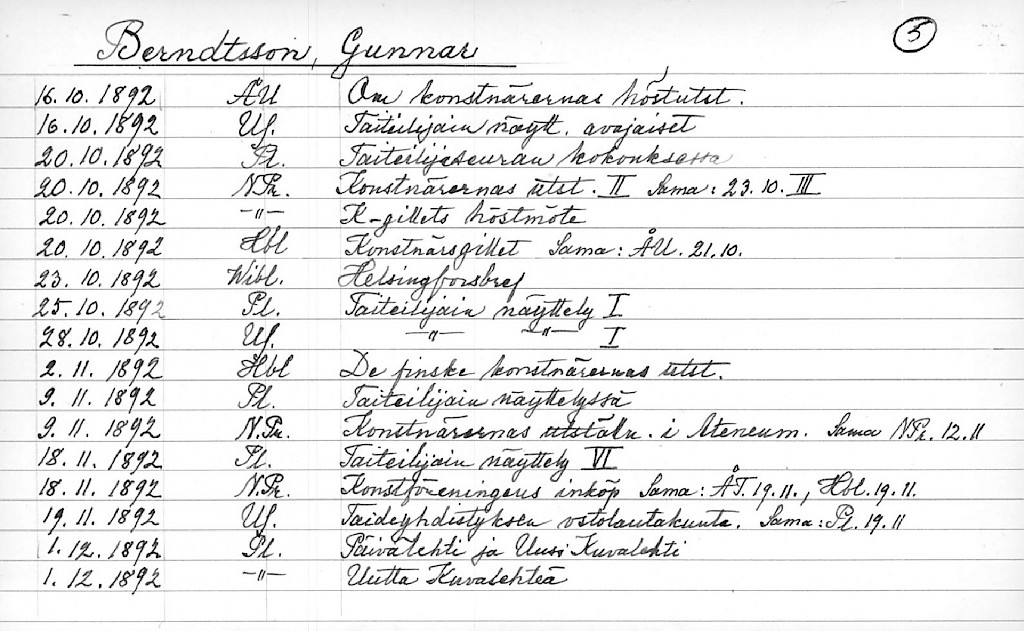 Berndtsson, Gunnar 5
16.10.1892 ÅU Om konstnärernas höstutst.
16.10.1892 Uf. Taiteilijain näytt. avajaiset
20.10.1892 Pl. Taiteilijaseuran kokouksessa
20.10.1892 N.Pr. Konstnärernas utst. II Sama: 23.10. III
20.10.1892 —"— K-gillets höstmöte
20.10.1892 Hbl Konstnärsgillet Sama: ÅU. 21.10.
23.10.1892 Wibl. Helsingforsbref
25.10.1892 Pl. Taiteilijain näyttely I
28.10.1892 Uf. —"— —"— I
2.11.1892 Hbl De finske konstnärernas utst.
9.11.1892 Pl. Taiteilijain näyttelyssä
9.11.1892 N.Pr. Konstnärernas utställn. i Ateneum. Sama NPr. 12.11
18.11.1892 Pl. Taiteilijain näyttely VI
18.11.1892 N.Pr. Konstföreningens inköp Sama: ÅT. 19.11., Hbl. 19.11.
19.11.1892 Uf. Taideyhdistyksen ostolautakunta. Sama: Pl. 19.11
1.12.1892 Pl. Päivälehti ja Uusi Kuvalehti
1.12.1892 —"— Uutta Kuvalehteä